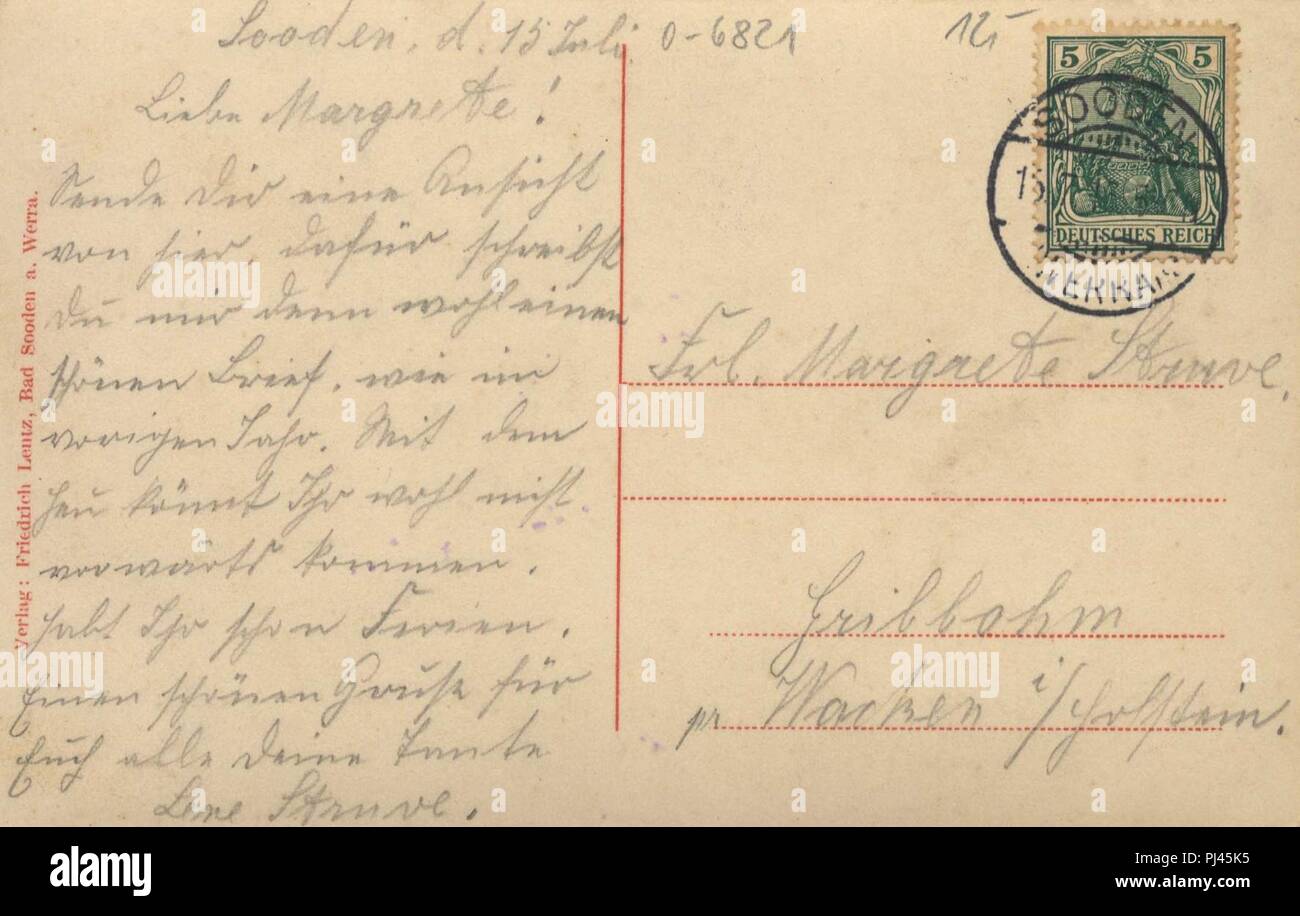 Sooden, d. 15 Juli
Liebe Margrete!
Sende Dir eine Ansicht
von hier, dafür schreibst
Du mir denn wohl einen
schönen Brief, wie im
vorigen Jahr. Mit dem
Heu könnt Ihr wohl nicht
vorwärts kommen.
Habt Ihr schon Ferien.
Einen schönen Gruß für
Euch alle Deine Tante
Lene Struve.
Verlag: Friedrich Lentz, Bad Sooden a. Werra.
0-6821
12,-
5 5
DEUTSCHES REICH
SOODEN
WERRA
Frl. Margrete Struve,
Gribbohm
pr Wacken i/Holstein.
alamy
Image ID: PJ45K5
www.alamy.com